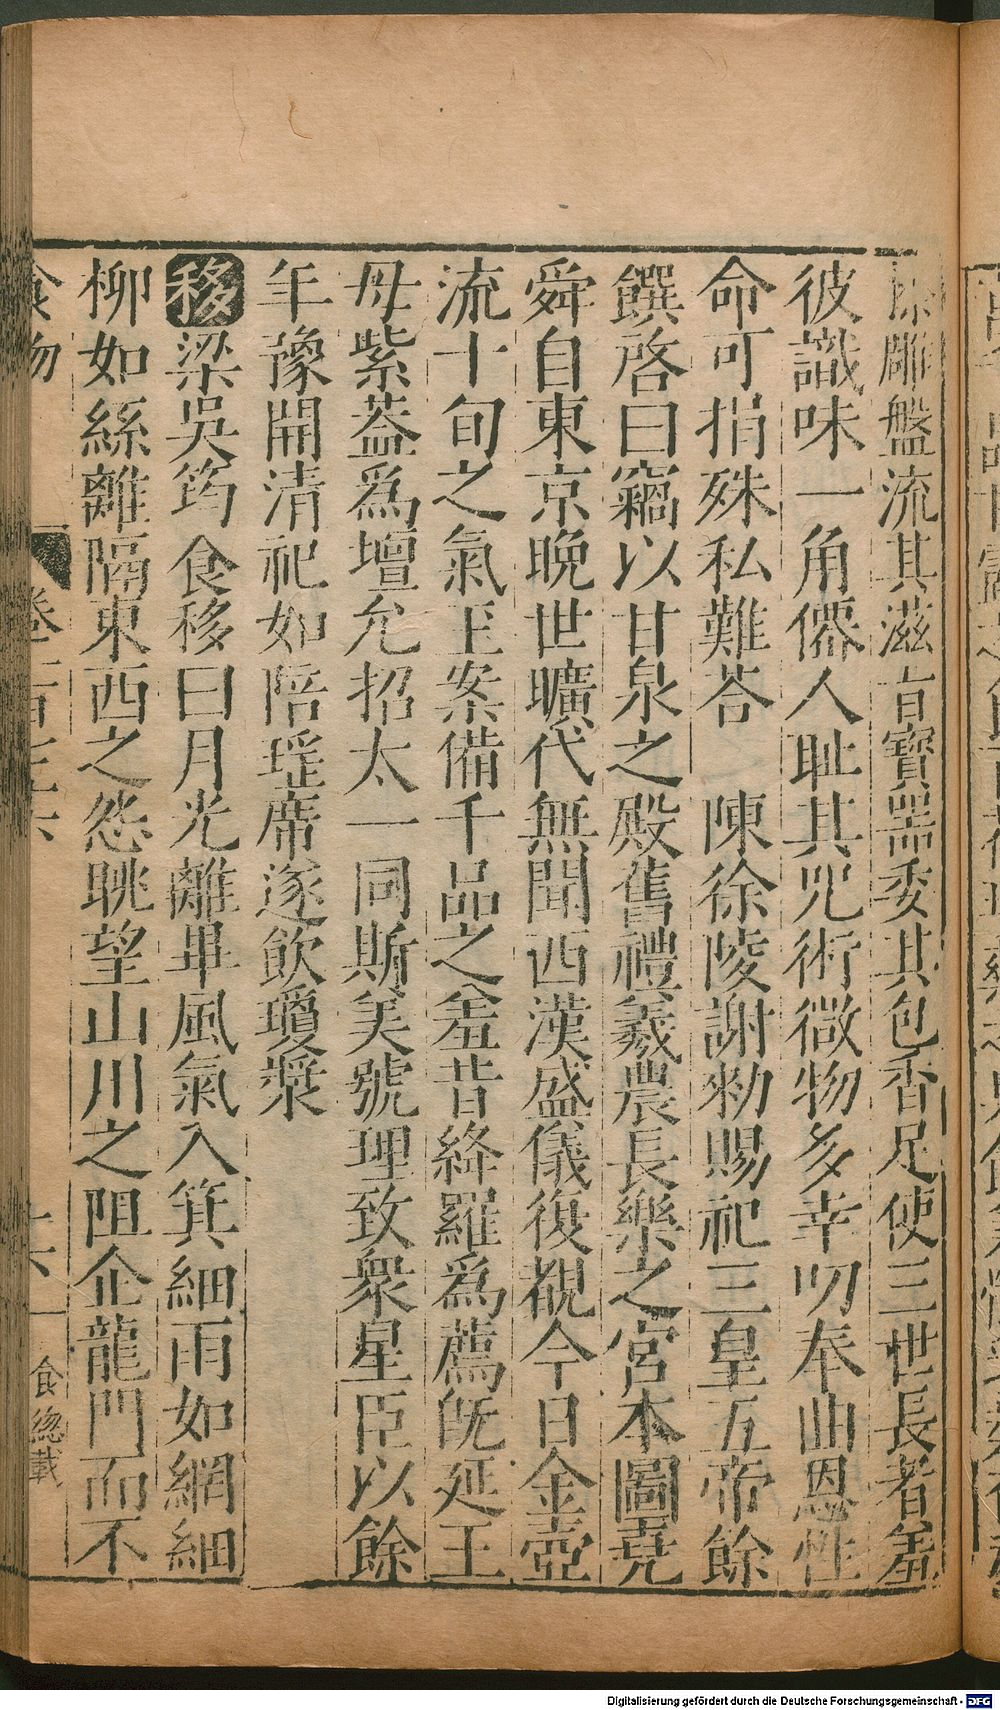 雕盤流其滋旨寶器委其包香足使三世長者羞
彼識味一角僊人耻其咒術微物多幸叨奉曲恩性
命可捐殊私難荅　陳徐陵謝勑賜祀三皇五帝餘
饌啓曰竊以甘泉之殿舊禮羲農長樂之宮本圖堯
舜自東京晚世曠代無聞西漢盛儀復覩今日金壺
流十旬之氣玉案備千品之羞昔絳羅爲薦旣延王
母紫葢爲壇允招太一同斯美號理致衆星臣以餘
年豫開清祀如陪瑤席遂飲瓊漿
移梁吳筠食移曰月光離畢風氣入箕細雨如網細
柳如絲離隔東西之怨眺望山川之阻企龍門而不
食物
卷
食總載
Digitalisierung gefördert durch die Deutsche Forschungsgemeinschaft - DFG